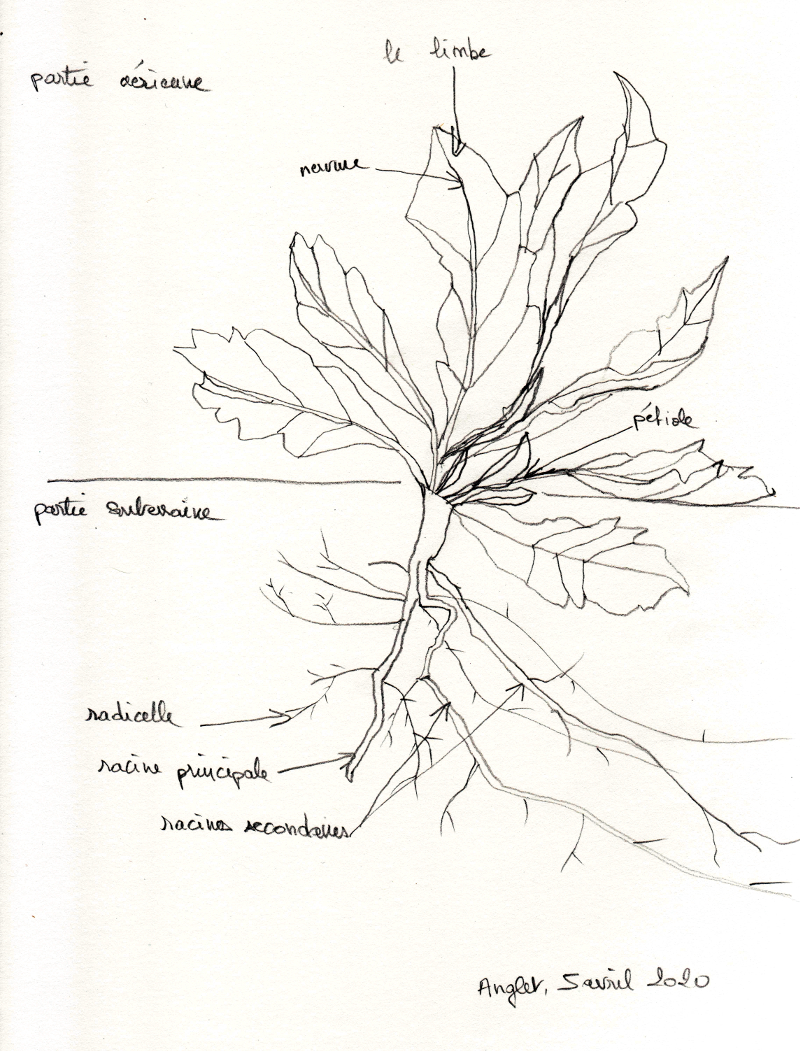 le limbe
partie aérienne
nervure
pétiole
partie suberraine
radicelle
racine principale
racines secondaires
Anglet, 5 avril 2020